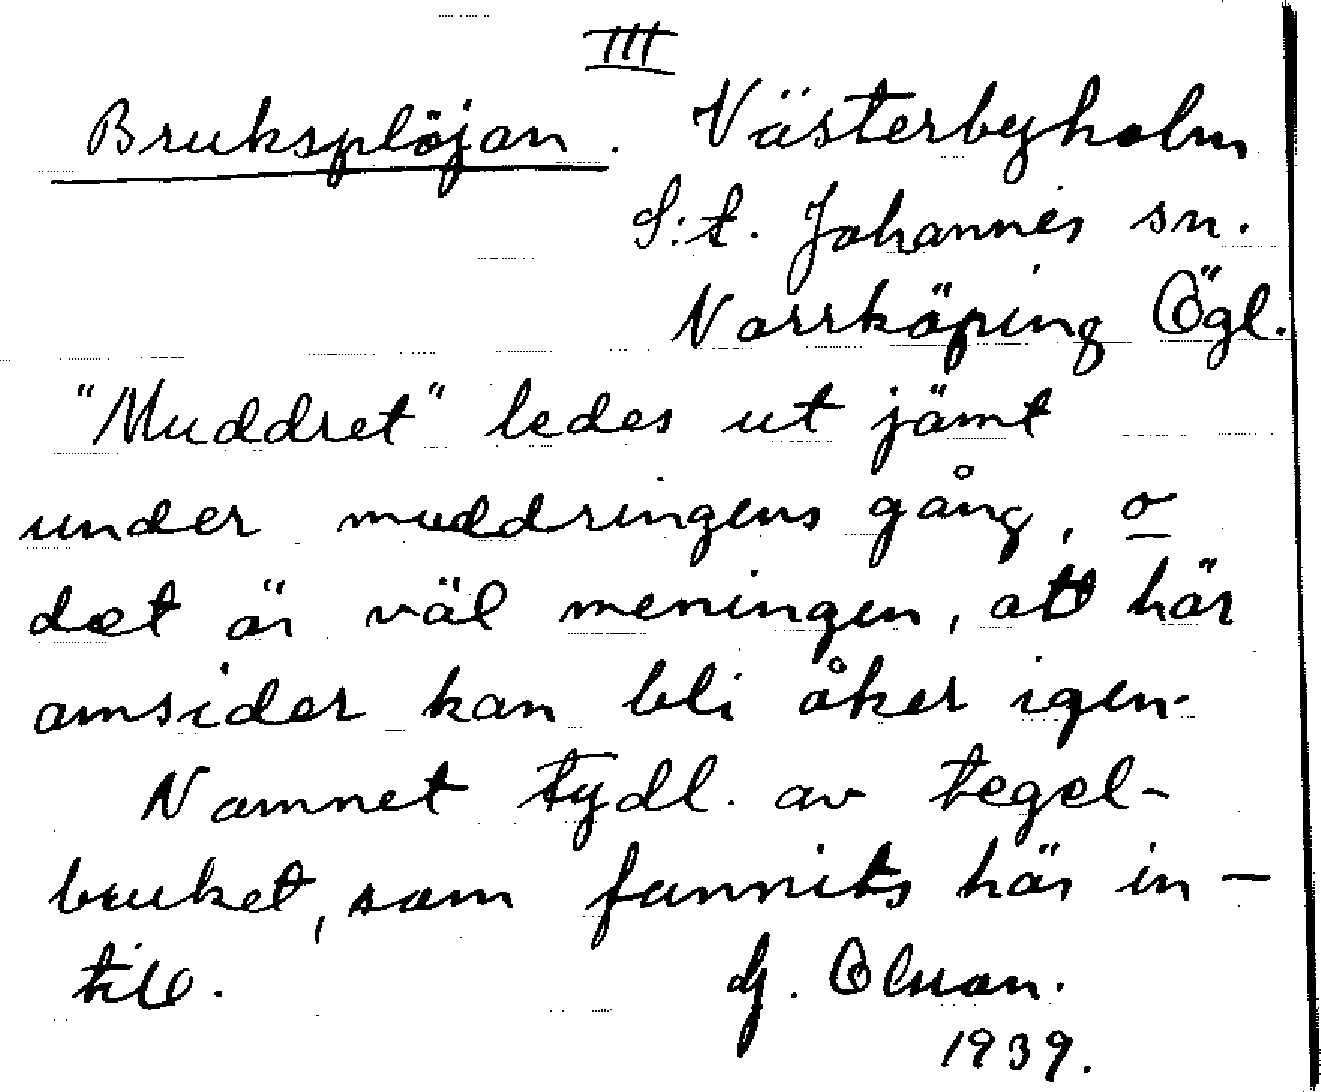 III
Bruksplöjan. Västerbyholm
S:t. Johannes sn.
Norrköping Ögl.
"Muddret" ledes ut jämt
under muddringens gång, o
det är väl meningen, att här
omsider kan bli åker igen.
Namnet tydl. av tegel-
bruket, som funnits här in-
till.
G. Olsson.
1939.